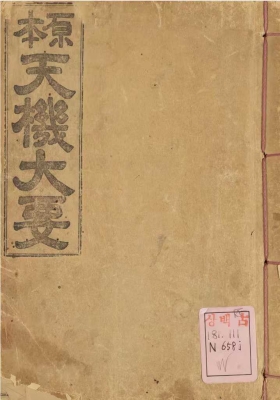 原本
天機大要
181.111
N658j